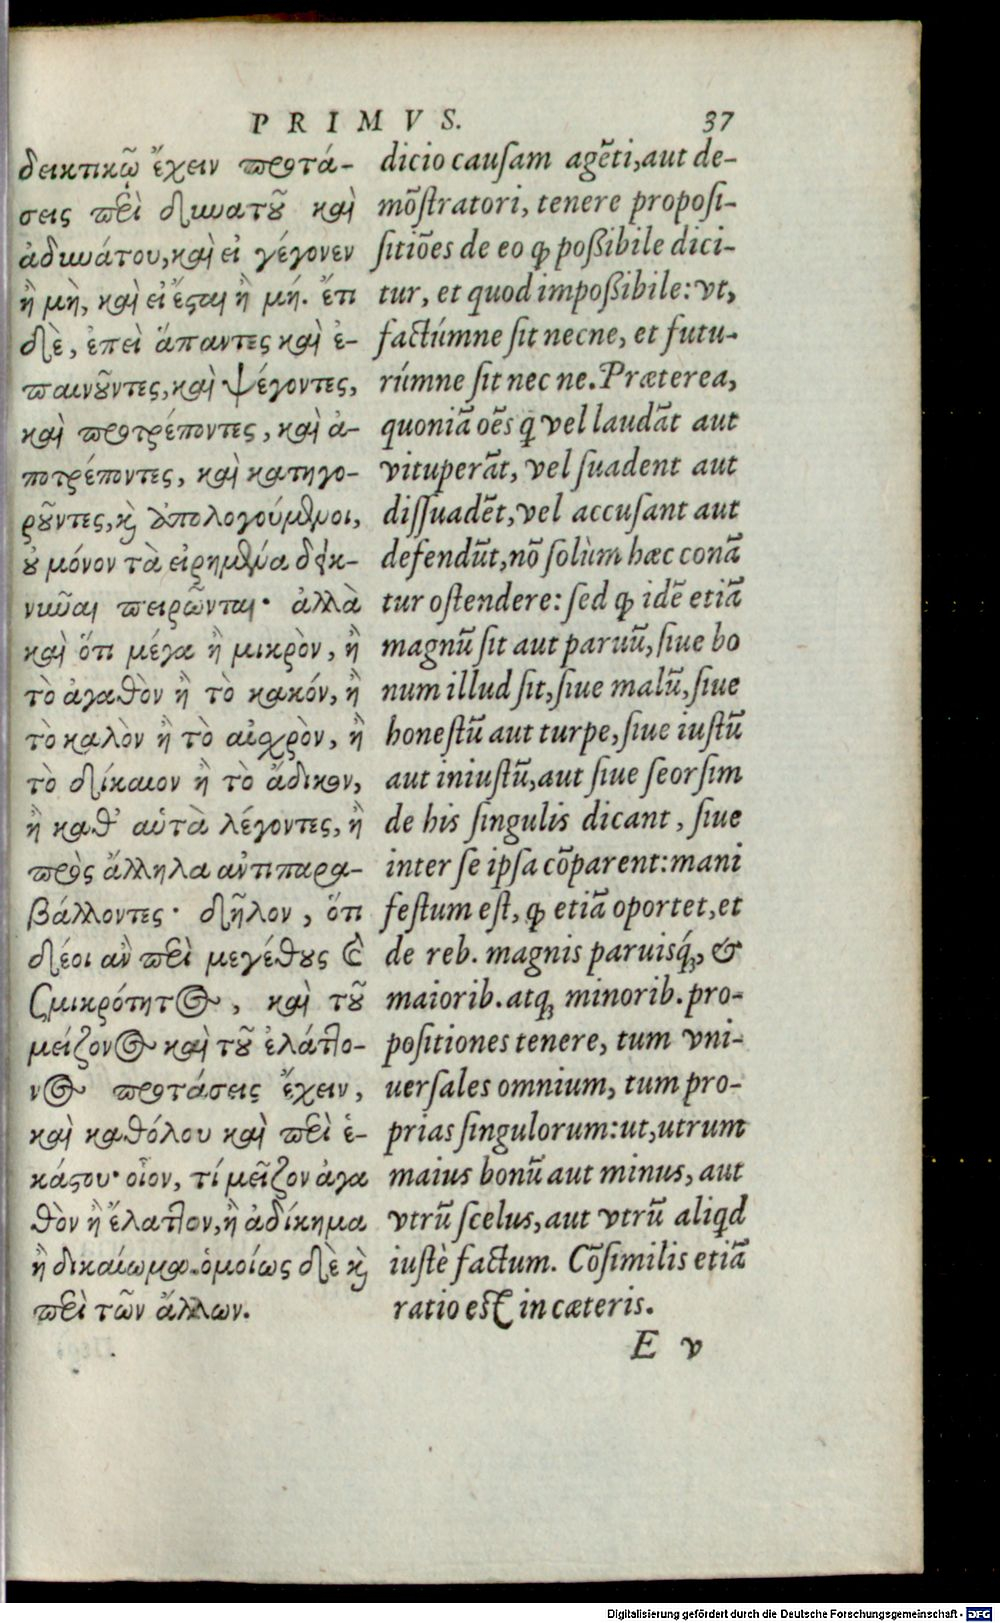 PRIMVS. 37
δεικτικῷ ἔχειν προτά-
σεις περὶ δυνατοῦ καὶ
ἀδυνάτου, καὶ εἰ γέγονεν
ἢ μὴ, καὶ εἰ ἔσται ἢ μή. ἔτι
δὲ, ἐπεὶ ἅπαντες καὶ ἐ-
παινοῦντες, καὶ ψέγοντες,
καὶ προτρέποντες, καὶ ἀ-
ποτρέποντες, καὶ κατηγο-
ροῦντες, καὶ ἀπολογούμενοι,
οὐ μόνον τὰ εἰρημένα δεικ-
νύναι πειρῶνται· ἀλλὰ
καὶ ὅτι μέγα ἢ μικρὸν, ἢ
τὸ ἀγαθὸν ἢ τὸ κακόν, ἢ
τὸ καλὸν ἢ τὸ αἰσχρὸν, ἢ
τὸ δίκαιον ἢ τὸ ἄδικον,
ἢ καθ' αὑτὰ λέγοντες, ἢ
πρὸς ἄλληλα ἀντιπαρα-
βάλλοντες· δῆλον, ὅτι
δέοι ἂν περὶ μεγέθους καὶ
σμικρότητος, καὶ τοῦ
μείζονος καὶ τοῦ ἐλάττο-
νος προτάσεις ἔχειν,
καὶ καθόλου καὶ περὶ ἑ-
κάστου· οἷον, τί μεῖζον ἀγα
θὸν ἢ ἔλαττον, ἢ ἀδίκημα
ἢ δικαίωμα. ὁμοίως δὲ καὶ
περὶ τῶν ἄλλων.
dicio cauſam agẽti, aut de-
mõſtratori, tenere propoſi-
ſitiões de eo ꝙ poßibile dici-
tur, et quod impoßibile: vt,
factúmne ſit necne, et futu-
rúmne ſit nec ne. Præterea,
quoniã oẽs q̃ vel laudãt aut
vituperãt, vel ſuadent aut
diſſuadẽt, vel accuſant aut
defendũt, nõ ſolùm hæc conã
tur oſtendere: ſed ꝙ idẽ etiã
magnũ ſit aut paruũ, ſiue bo
num illud ſit, ſiue malũ, ſiue
honeſtũ aut turpe, ſiue iuſtũ
aut iniuſtũ, aut ſiue ſeorſim
de his ſingulis dicant, ſiue
inter ſe ipſa cõparent: mani
feſtum eſt, ꝙ etiã oportet, et
de reb. magnis paruisq́;, &
maiorib. atq; minorib. pro-
poſitiones tenere, tum vni-
uerſales omnium, tum pro-
prias ſingulorum: ut, utrum
maius bonũ aut minus, aut
vtrũ ſcelus, aut vtrũ aliqd
iuſtè factum. Cõſimilis etiã
ratio eſt in cæteris.
E v
Digitalisierung gefördert durch die Deutsche Forschungsgemeinschaft - DFG